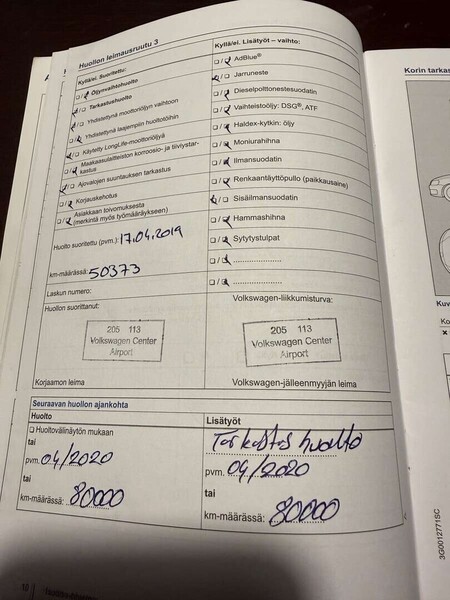 Huollon leimausruutu 3
Kyllä/ei. Suoritettu:
Öljynvaihtohuolto
Tarkastushuolto
Yhdistettynä moottoriöljyn vaihtoon
Yhdistettynä laajempiin huoltotöihin
Käytetty LongLife-moottoriöljyä
Maakaasulaitteiston korroosio- ja tiiviystar-
kastus
Ajovalojen suuntauksen tarkastus
Korjauskehotus
Asiakkaan toivomuksesta
(merkintä myös työmääräykseen)
Huolto suoritettu (pvm.): 17.04.2019
km-määrässä: 50373
Laskun numero:
Huollon suorittanut:
205 113
Volkswagen Center
Airport
Korjaamon leima
Kyllä/ei. Lisätyöt – vaihto:
AdBlue®
Jarruneste
Dieselpolttonestesuodatin
Vaihteistoöljy: DSG®, ATF
Haldex-kytkin: öljy
Moniurahihna
Ilmansuodatin
Renkaantäyttöpullo (paikkausaine)
Sisäilmansuodatin
Hammashihna
Sytytystulpat
Volkswagen-liikkumisturva:
205 113
Volkswagen Center
Airport
Volkswagen-jälleenmyyjän leima
Seuraavan huollon ajankohta
Huolto
Huoltovälinäytön mukaan
tai
pvm. 04/2020
tai
km-määrässä: 80000
Lisätyöt
Tarkastus huolto
pvm. 04/2020
tai
km-määrässä: 80000
Korin tarkas
3G0012771SC
10